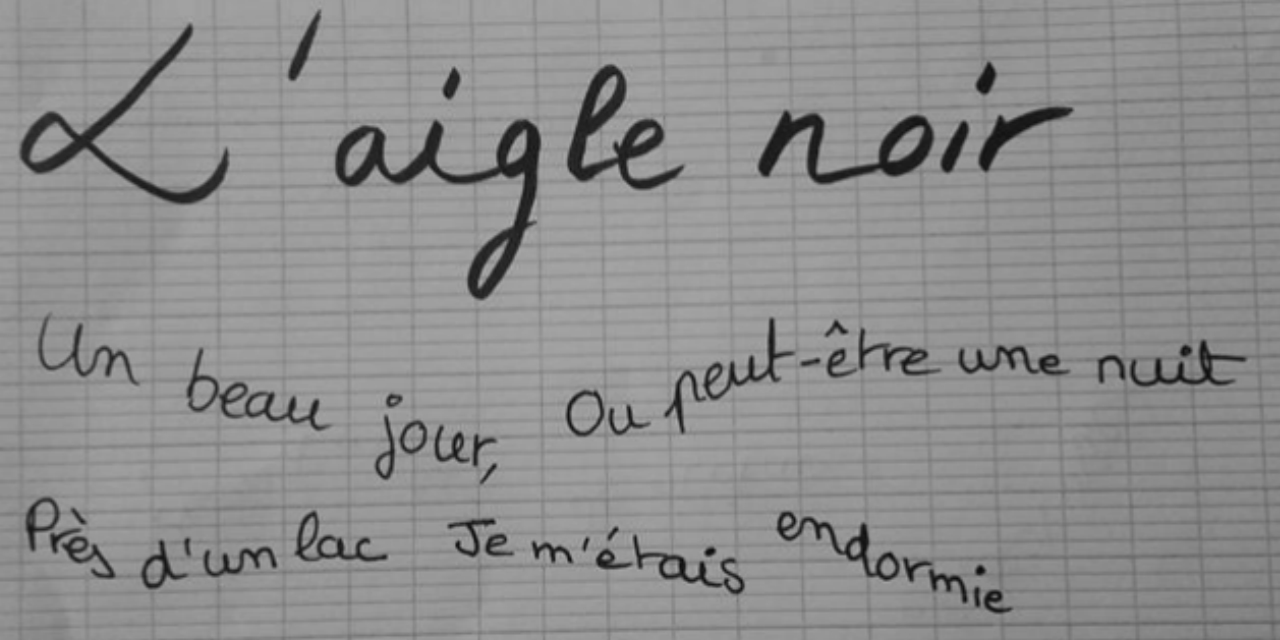 L'aigle noir
Un beau jour, Ou peut-être une nuit
Près d'un lac Je m'étais endormie